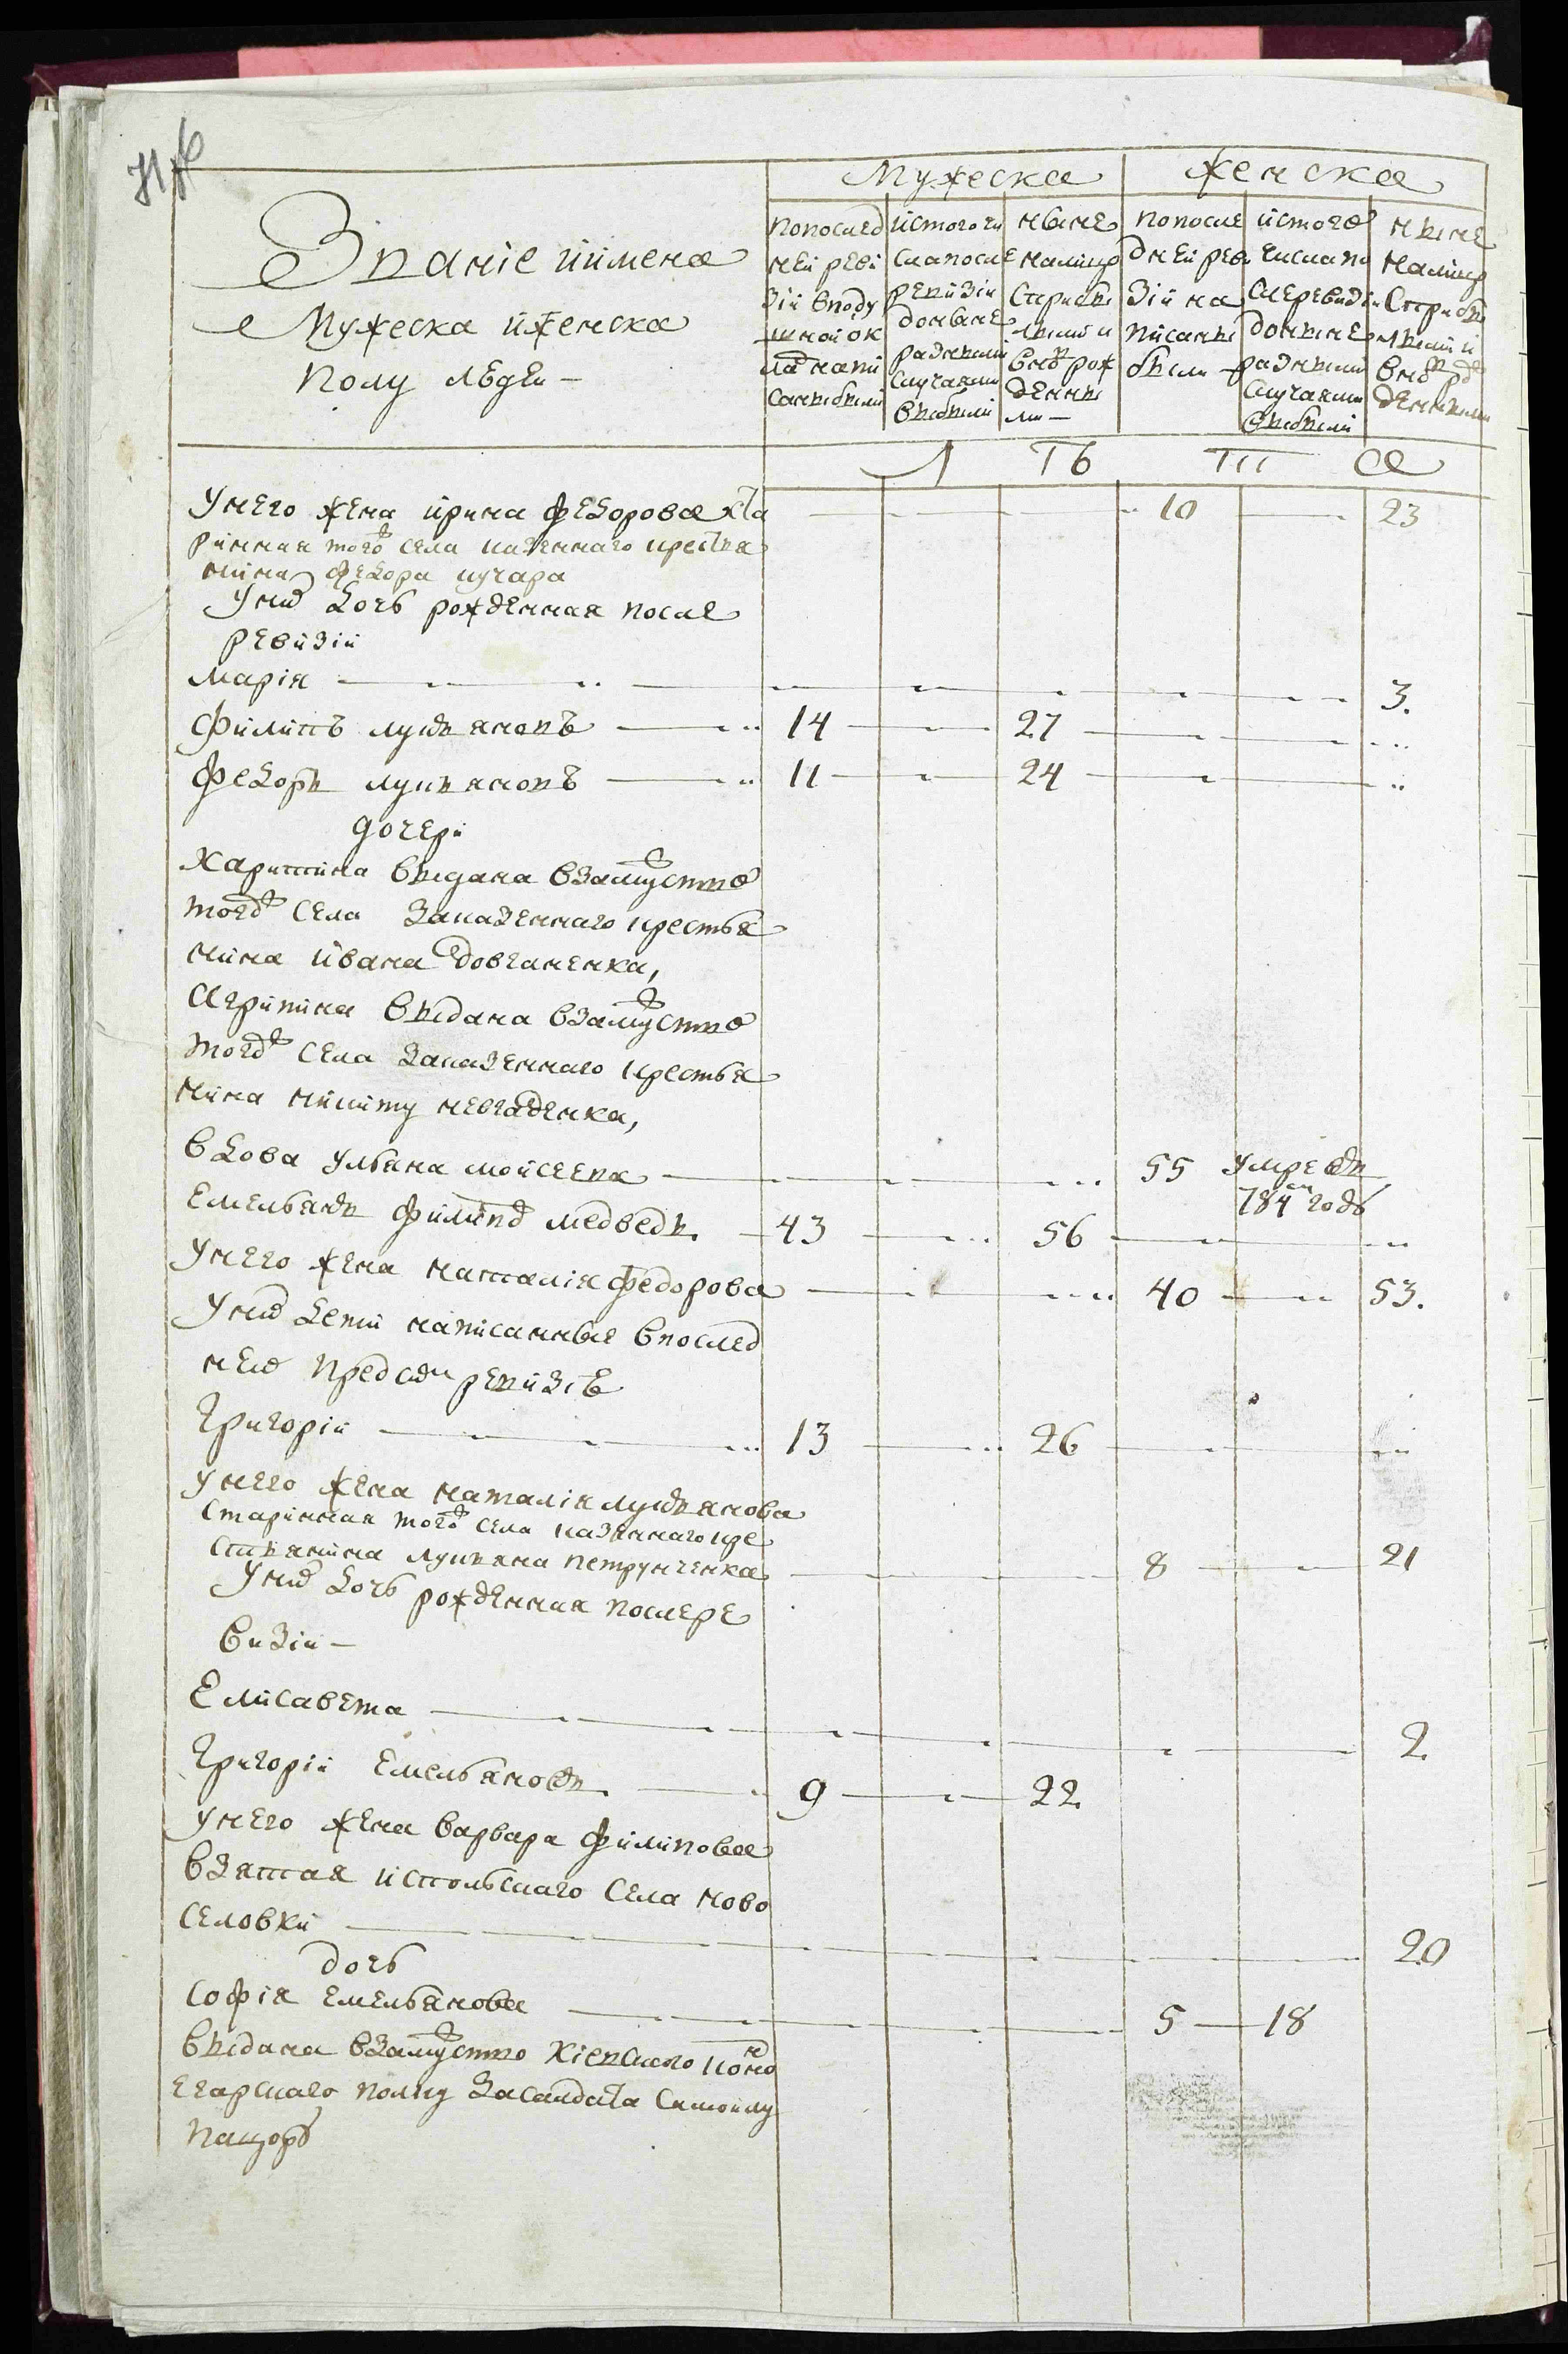 Мужеска
женска
Званіе и имена
Мужеска и женска
полу людеи –
попослед
ней реви
зіи вподу
шной ок
ладнапи
саныбыли
истогочи
слапосле
ревизіи
доныне
разными
случаями
выбыли
ныне
налицо
спри бы
лыми и
вновь рож
денны
ми –
попосле
дней реви
зіи на
писаны
были
истого
числапо
слеревизіи
доныне
разными
случаями
выбыли
ныне
налицо
сприбы
лыми и
вновь рож
денными
Л ѣ т а
У него жена ирина федорова ста 10 23
ринная того села казенного крестья
нина федора кучара
У них дочь рожденная после
ревизіи
Марія 3.
Филипъ лукьяновъ 14 27
Федоръ лукьяновъ 11 24
дочери
Харитина выдана взамужство
того села заказенного крестья
нина ивана довганенка,
Агрипина выдана взамужство
того села заказенного крестья
нина никиту
вдова ульяна мойсеева 55 умре въ
784м годѣ
Емельянъ филиповъ медведь 43 56
У него жена наталія федорова 40 53.
У них дети написанные впослед
ней пред сим ревизіе
Григорій 13 26
У него жена наталія лукьянова
старинная того села казенного кре
стьянина лукьяна петрунченка 8 21
У них дочь рожденная послере
визіи –
Елисавета 2
Григорій Емельяновъ 9 22
У него жена варвара филипова
взятая истольского села ново
селовки 20
дочь
Софія емельянова 5 18
выдана взамужство кіевского коно
егарского полку засалдата самойлу